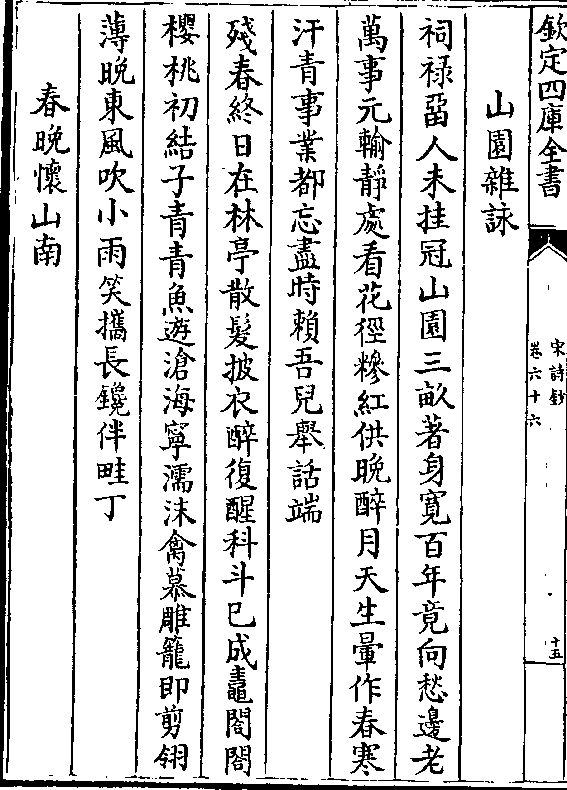 欽定四庫全書
宋詩鈔
卷六十六
十五
山園雜詠
祠祿留人未挂冠山園三畝著身寛百年竟向愁邊老
萬事元輸靜處看花徑糝紅供晚醉月天生暈作春寒
汗青事業都忘盡時賴吾兒舉話端
殘春終日在林亭散髮披衣醉復醒科斗已成鼃閤閤
櫻桃初結子青青魚遊滄海寧濡沫禽慕雕籠即剪翎
薄晚東風吹小雨笑攜長鑱伴畦丁
春晚懷山南